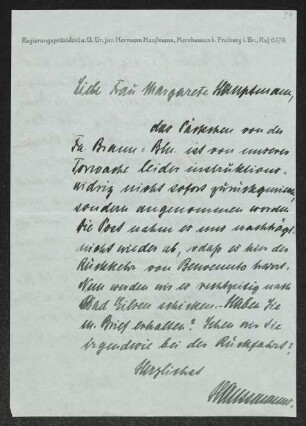 Regierungspräsident a. D. Dr. jur. Hermann Haußmann, Merzhausen b. Freiburg i. Br., Ruf 6170
Liebe Frau Margarete Hauptmann,
das Päckchen von der
Fa. Braun - Bln. ist von unserer
Torwache leider instruktions-
widrig nicht sofort zurückgewiesen,
sondern angenommen worden.
Die Post nahm es uns nachträgl.
nicht wieder ab, sodaß es hier der
Rückkehr von Benvenuto harrt.
Nun werden wir es rechtzeitig nach
Bad Eilsen schicken. - Haben Sie
m. Brief erhalten? Sehen wir Sie
irgendwie bei der Rückfahrt?
Herzlichst
Haussmann.